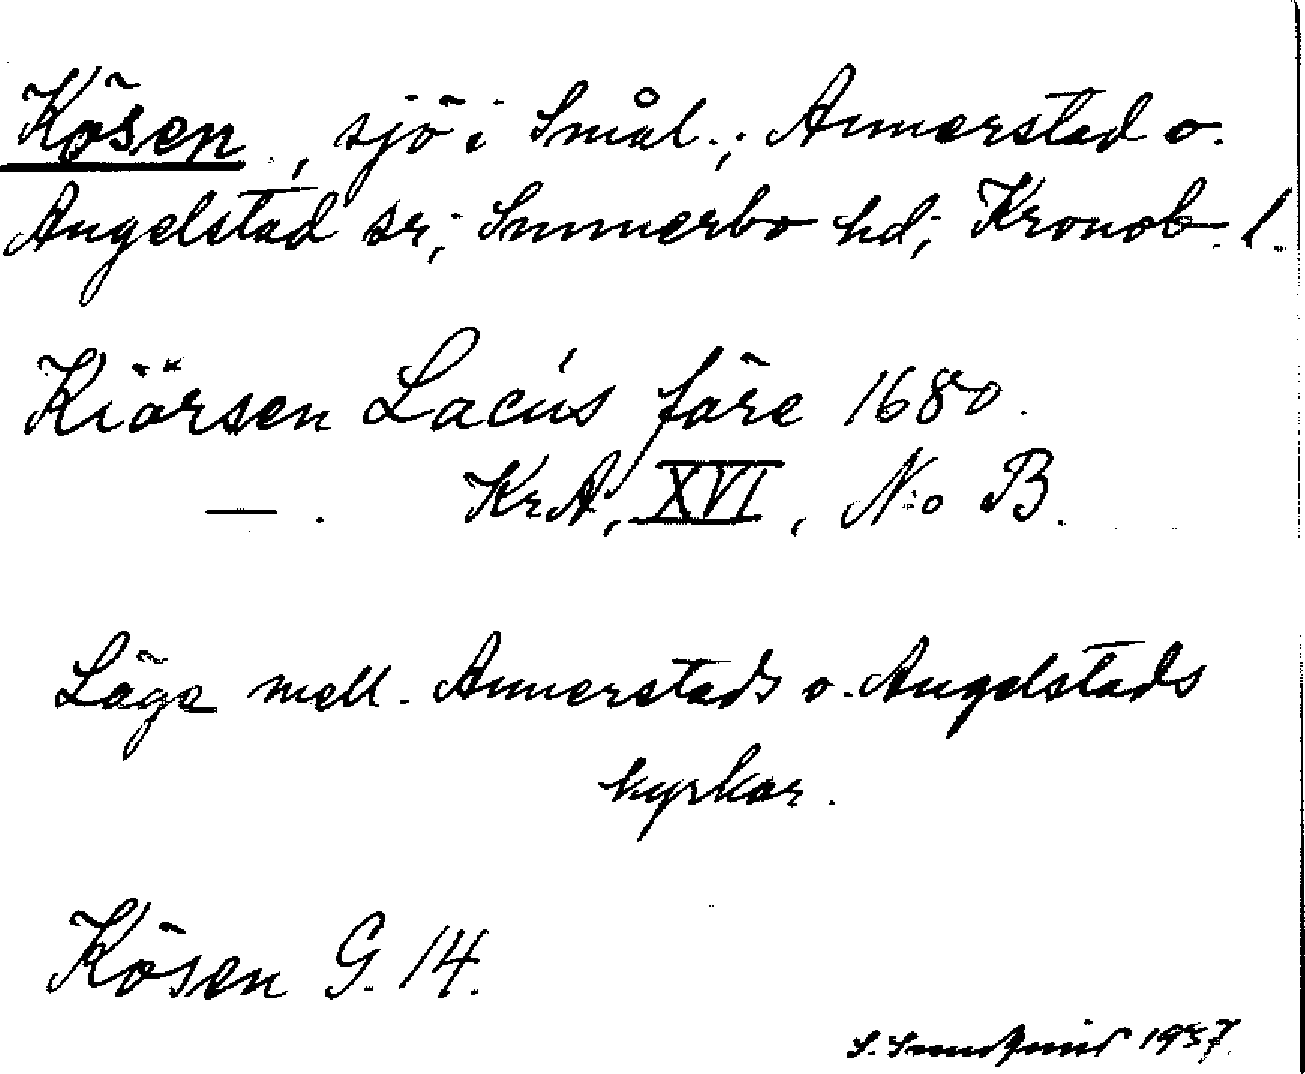 Kösen, sjö i Smål.; Annerstad o.
Angelstad sr; Sunnerbo hd; Kronob. l.
Kiörsen Lacus före 1680.
—. KrA, XVI, N:o B.
Läge mell. Annerstads o. Angelstads
kyrkor.
Kösen G. 14.
S. 1937.